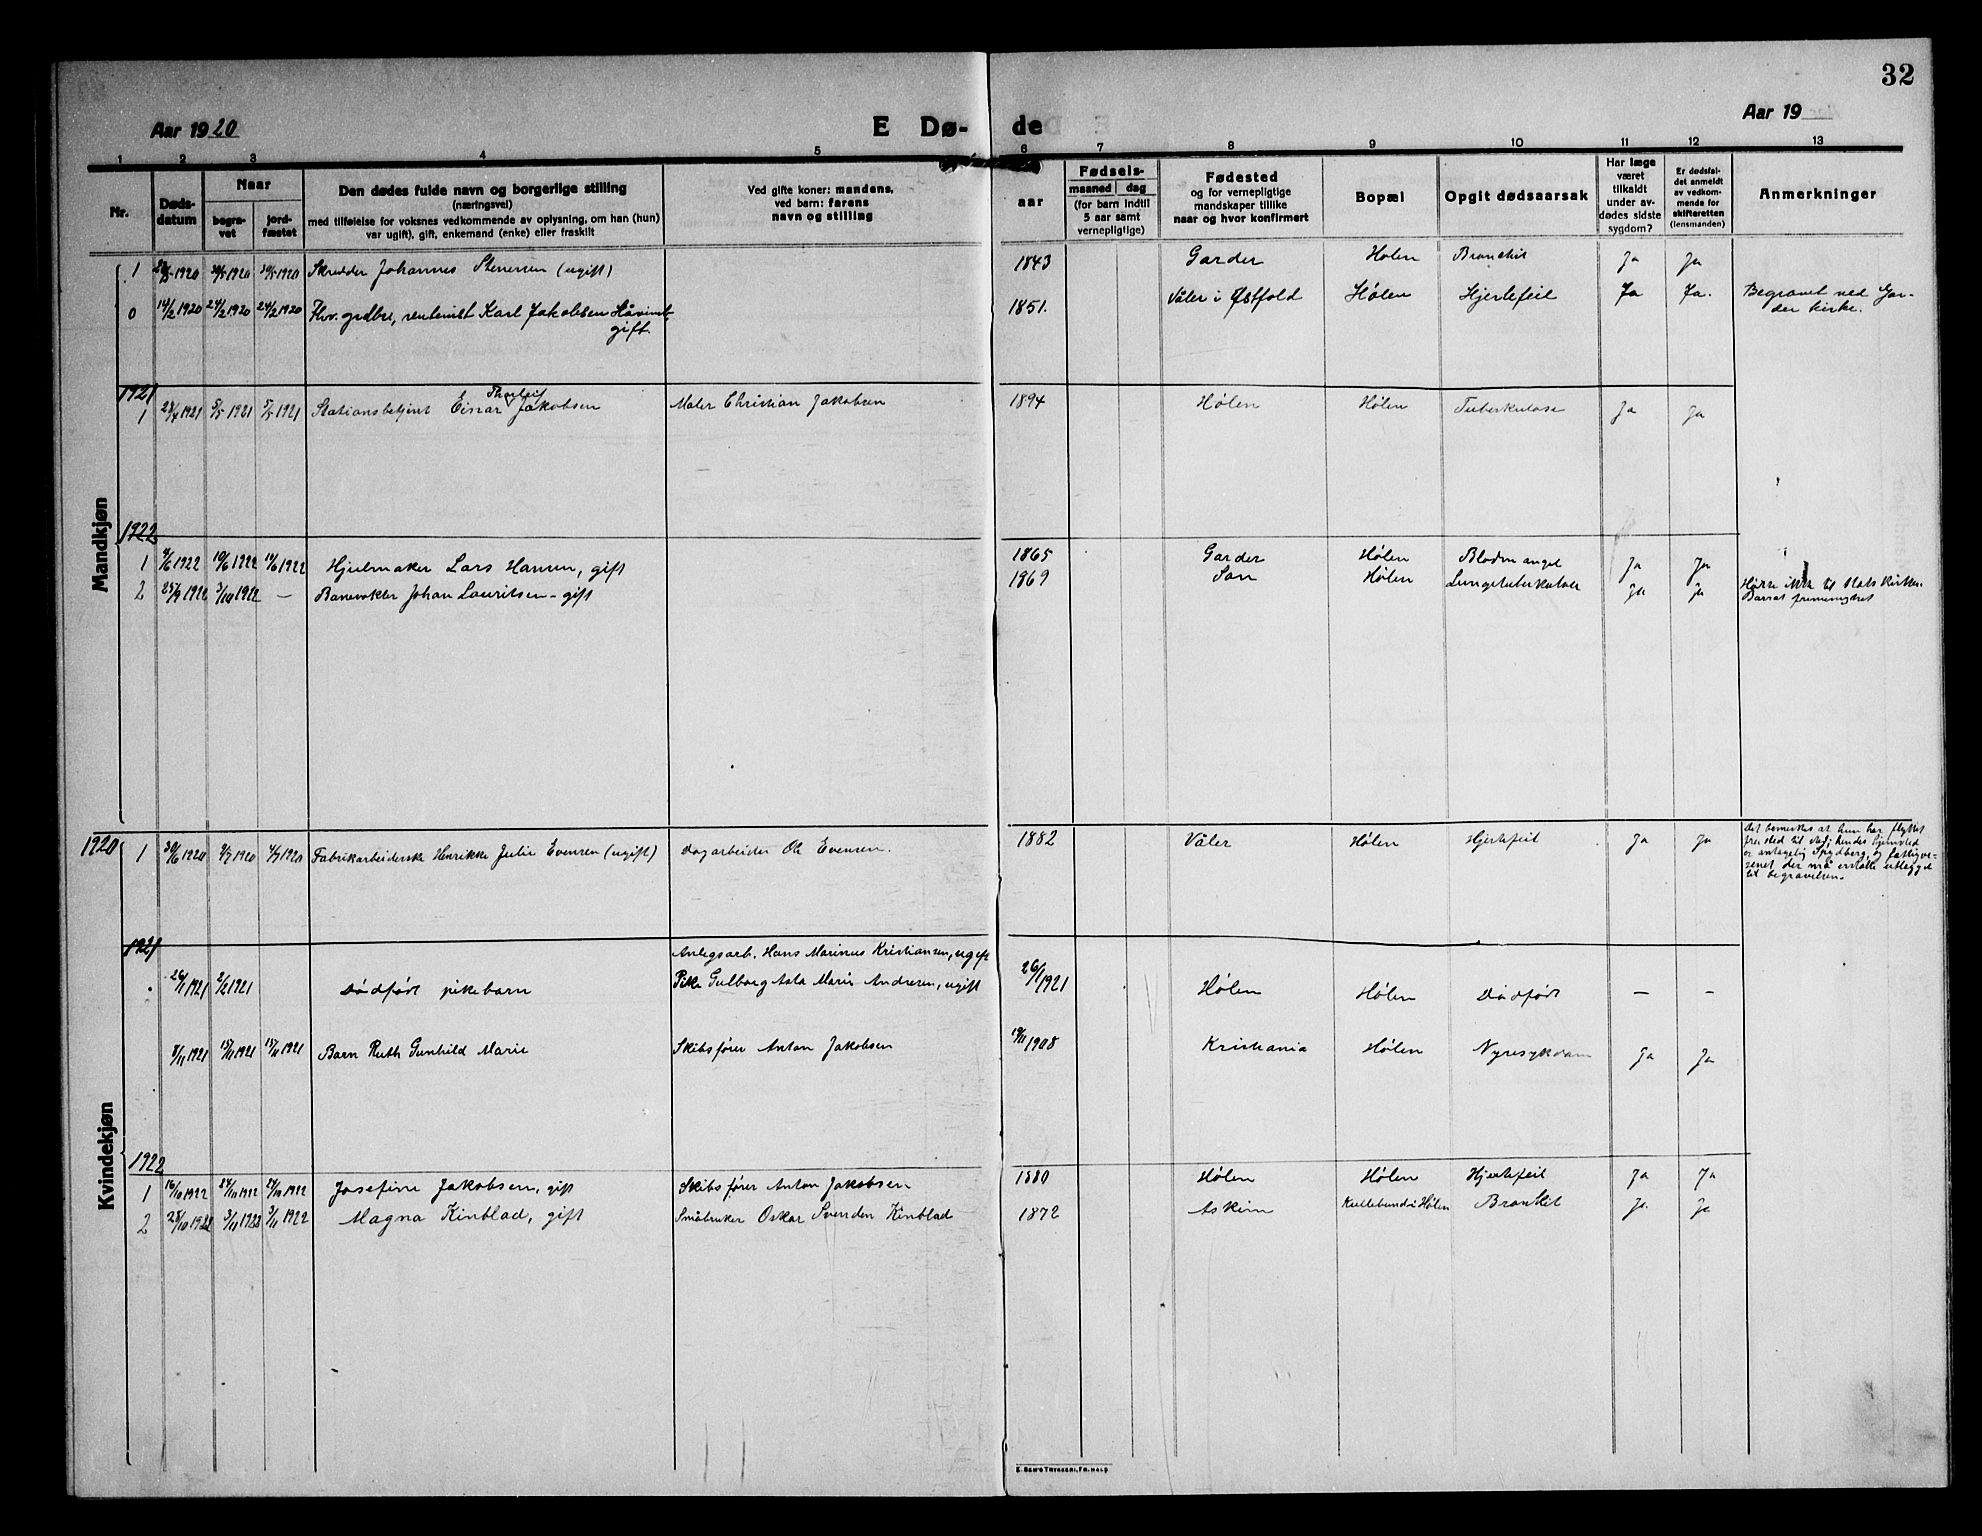 32
Aar 1920
E Dø-
de
Aar 19
1 2 3 4 5 6 7 8 9 10 11 12 13
Nr.
Døds-
datum
Naar
begra-
vet
jord-
fæstet
Den dødes fulde navn og borgerlige stilling
(næringsvei)
med tilføielse for voksnes vedkommende av oplysning, om han (hun)
var ugift), gift, enkemand (enke) eller fraskilt
Ved gifte koner: mandens,
ved børn: farens
navn og stilling
aar
Fødsels-
maaned dag
(for barn indtil
5 aar samt
vernepligtige)
Fødested
og for vernepligtige
mandskaper tillike
naar og hvor konfirmert
Bopæl
Opgit dødsaarsak
Har læge
været
tilkaldt
under av-
dødes sidste
sygdom?
Er dødsfal-
det anmeldt
av vedkom-
mende for
skifteretten
(lensmanden)
Anmerkninger
Mandkjøn
1 /5 1920 /5 1920 /5 1920 Skredder Johannes Stenersen (ugift) 1843 Garder Holen Bronchit Ja Ja
0 14/2 1920 24/2 1920 24/2 1920 Fhv. grdbr, rentenist Karl Jakobsen 1851. Våler i Østfold Hølen Hjertefeil Ja Ja. Begravet ved Gar-
gift. der kirke.
1921
Thorleif
1 /4 1921 5/5 1921 5/5 1921 Stationsbetjent Einar Jakobsen Maler Christian Jakobsen 1894 Hølen Hølen Tuberkulose Ja Ja
1922
1 /6 1922 10/6 1922 /6 1922 Hjulmaker Lars Hansen, gift 1865 Garder Hølen Blodmangel Ja Ja
2 25/9 1922 3/10 1922 — Banevokter Johan Lauritsen - gift 1869 Son Hølen Lungetuberkulose Ja Ja Hørte ikke til Statskirken.
Kvindekjøn
1920
1 30/6 1920 /7 1920 /7 1920 Fabrikarbeiderske Henrikke Julie Evensen (ugift) dagarbeider Ole Evensen. 1882 Våler Hølen Hjertefeil Ja Ja Det bemerkes at hun har flyttet
fra sted til sted; hendes hjemsted
er antagelig Spydberg, og fattigve-
senet der må erstatte utlægget
til begravelsen.
1921
Anlegsarb. Hans Marinus Kristiansen, ugift
26/1 1921 2/2 1921 Dødfødt pikebarn Pike Gulborg Asta Marie Andresen, ugift 26/1 1921 Hølen Hølen Dødfødt — —
8/11 1921 15/11 1921 15/11 1921 Barn Ruth Gunhild Marie Skibsfører Anton Jakobsen 19/11 1908 Kristiania Hølen Nyresykdom Ja Ja
1922
1 16/10 1922 24/10 1922 24/10 1922 Josefine Jakobsen, gift Skibsfører Anton Jakobsen 1880 Hølen Hølen Hjertefeil Ja Ja
2 28/10 1922 3/11 1922 3/11 1922 Magna Kinblad, gift Småbruker Oskar Svendsen Kinblad 1872 Askim Hølen Bronkit Ja Ja
E. SEM'S TRYKKERI, FR.HALD